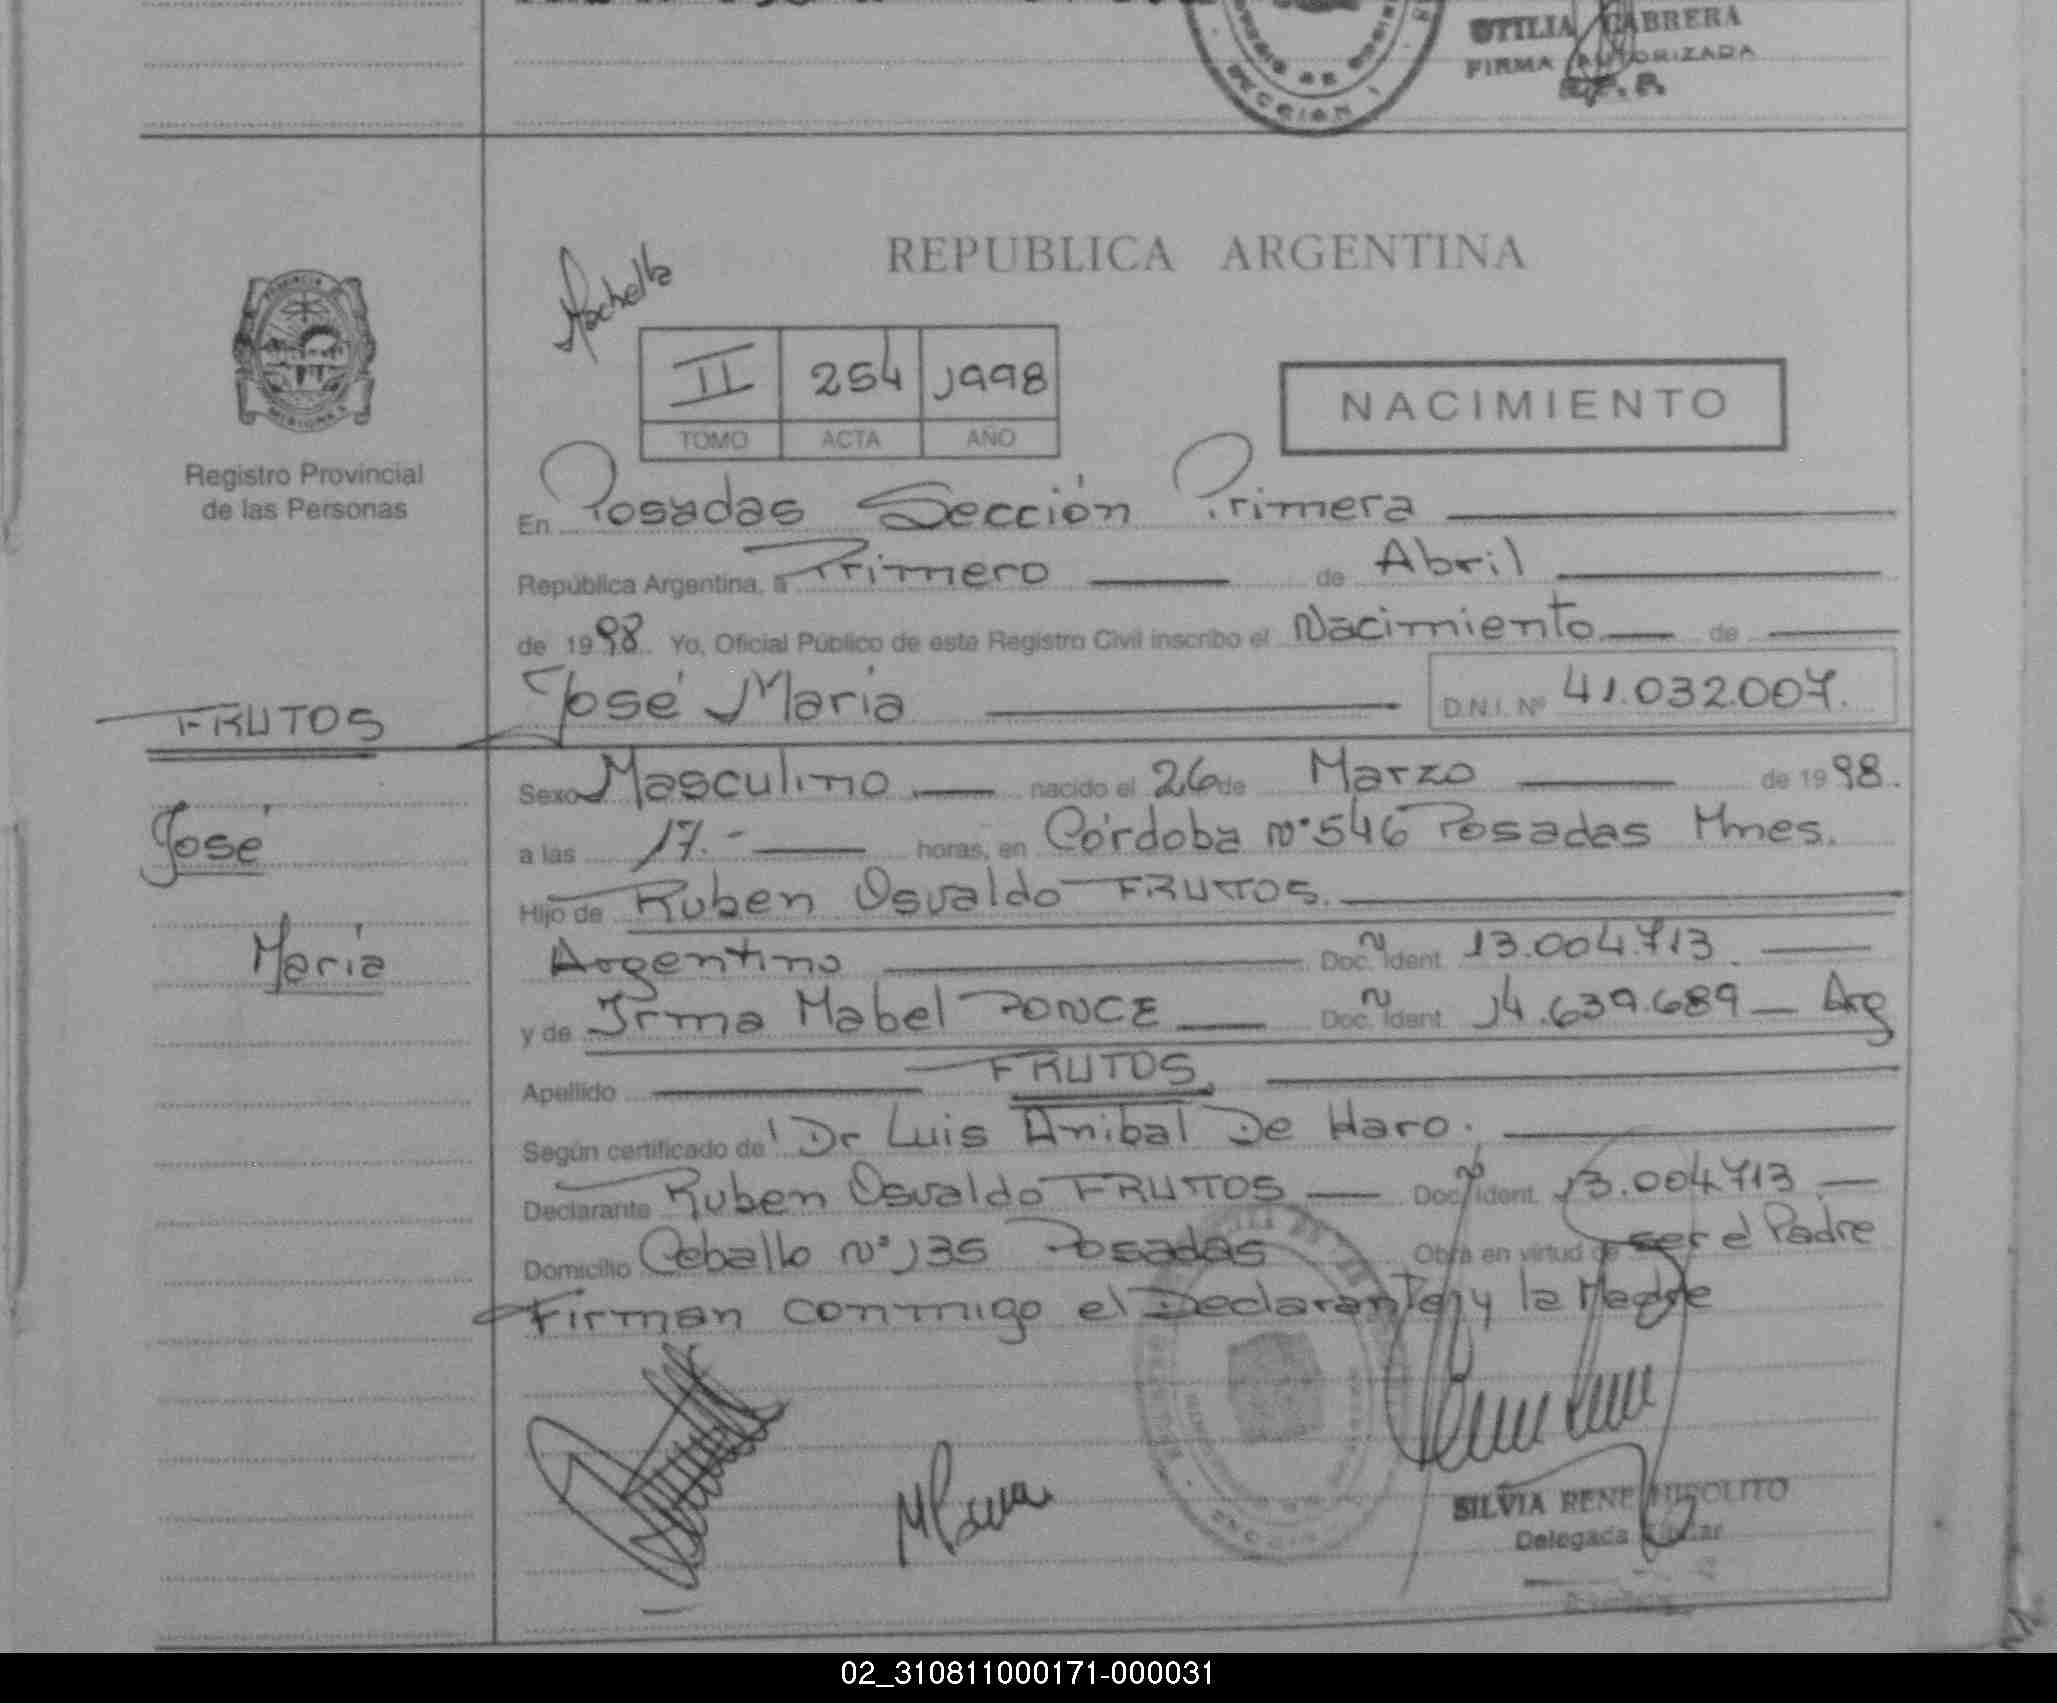 OTILIA CABRERA
FIRMA AUTORIZADA
SECCION 1
REPUBLICA ARGENTINA
II 254 1998
TOMO ACTA AÑO
NACIMIENTO
Registro Provincial
de las Personas
En Posadas Sección Primera
República Argentina, a Primero de Abril
de 1998 Yo, Oficial Público de este Registro Civil inscribo el Nacimiento de
José María D.N.I. Nº 41.032.007.
FRUTOS
José
María
Sexo Masculino nacido el 26 de Marzo de 1998.
a las 17.- horas, en Córdoba Nº 546 Posadas Mnes.
Hijo de Ruben Osvaldo FRUTOS.
Argentino Doc. Ident. 13.004.713.
y de Irma Mabel PONCE Doc. Ident. 14.639.689 Arg
Apellido FRUTOS.
Según certificado de Dr Luis Anibal De Haro.
Declarante Ruben Osvaldo FRUTOS Doc. Ident. 13.004.713
Domicilio Ceballo Nº 135 Posadas Obra en virtud de ser el Padre
Firman conmigo el Declarante y la Madre
SILVIA RENE HIPOLITO
Delegada Titular
02_310811000171-000031